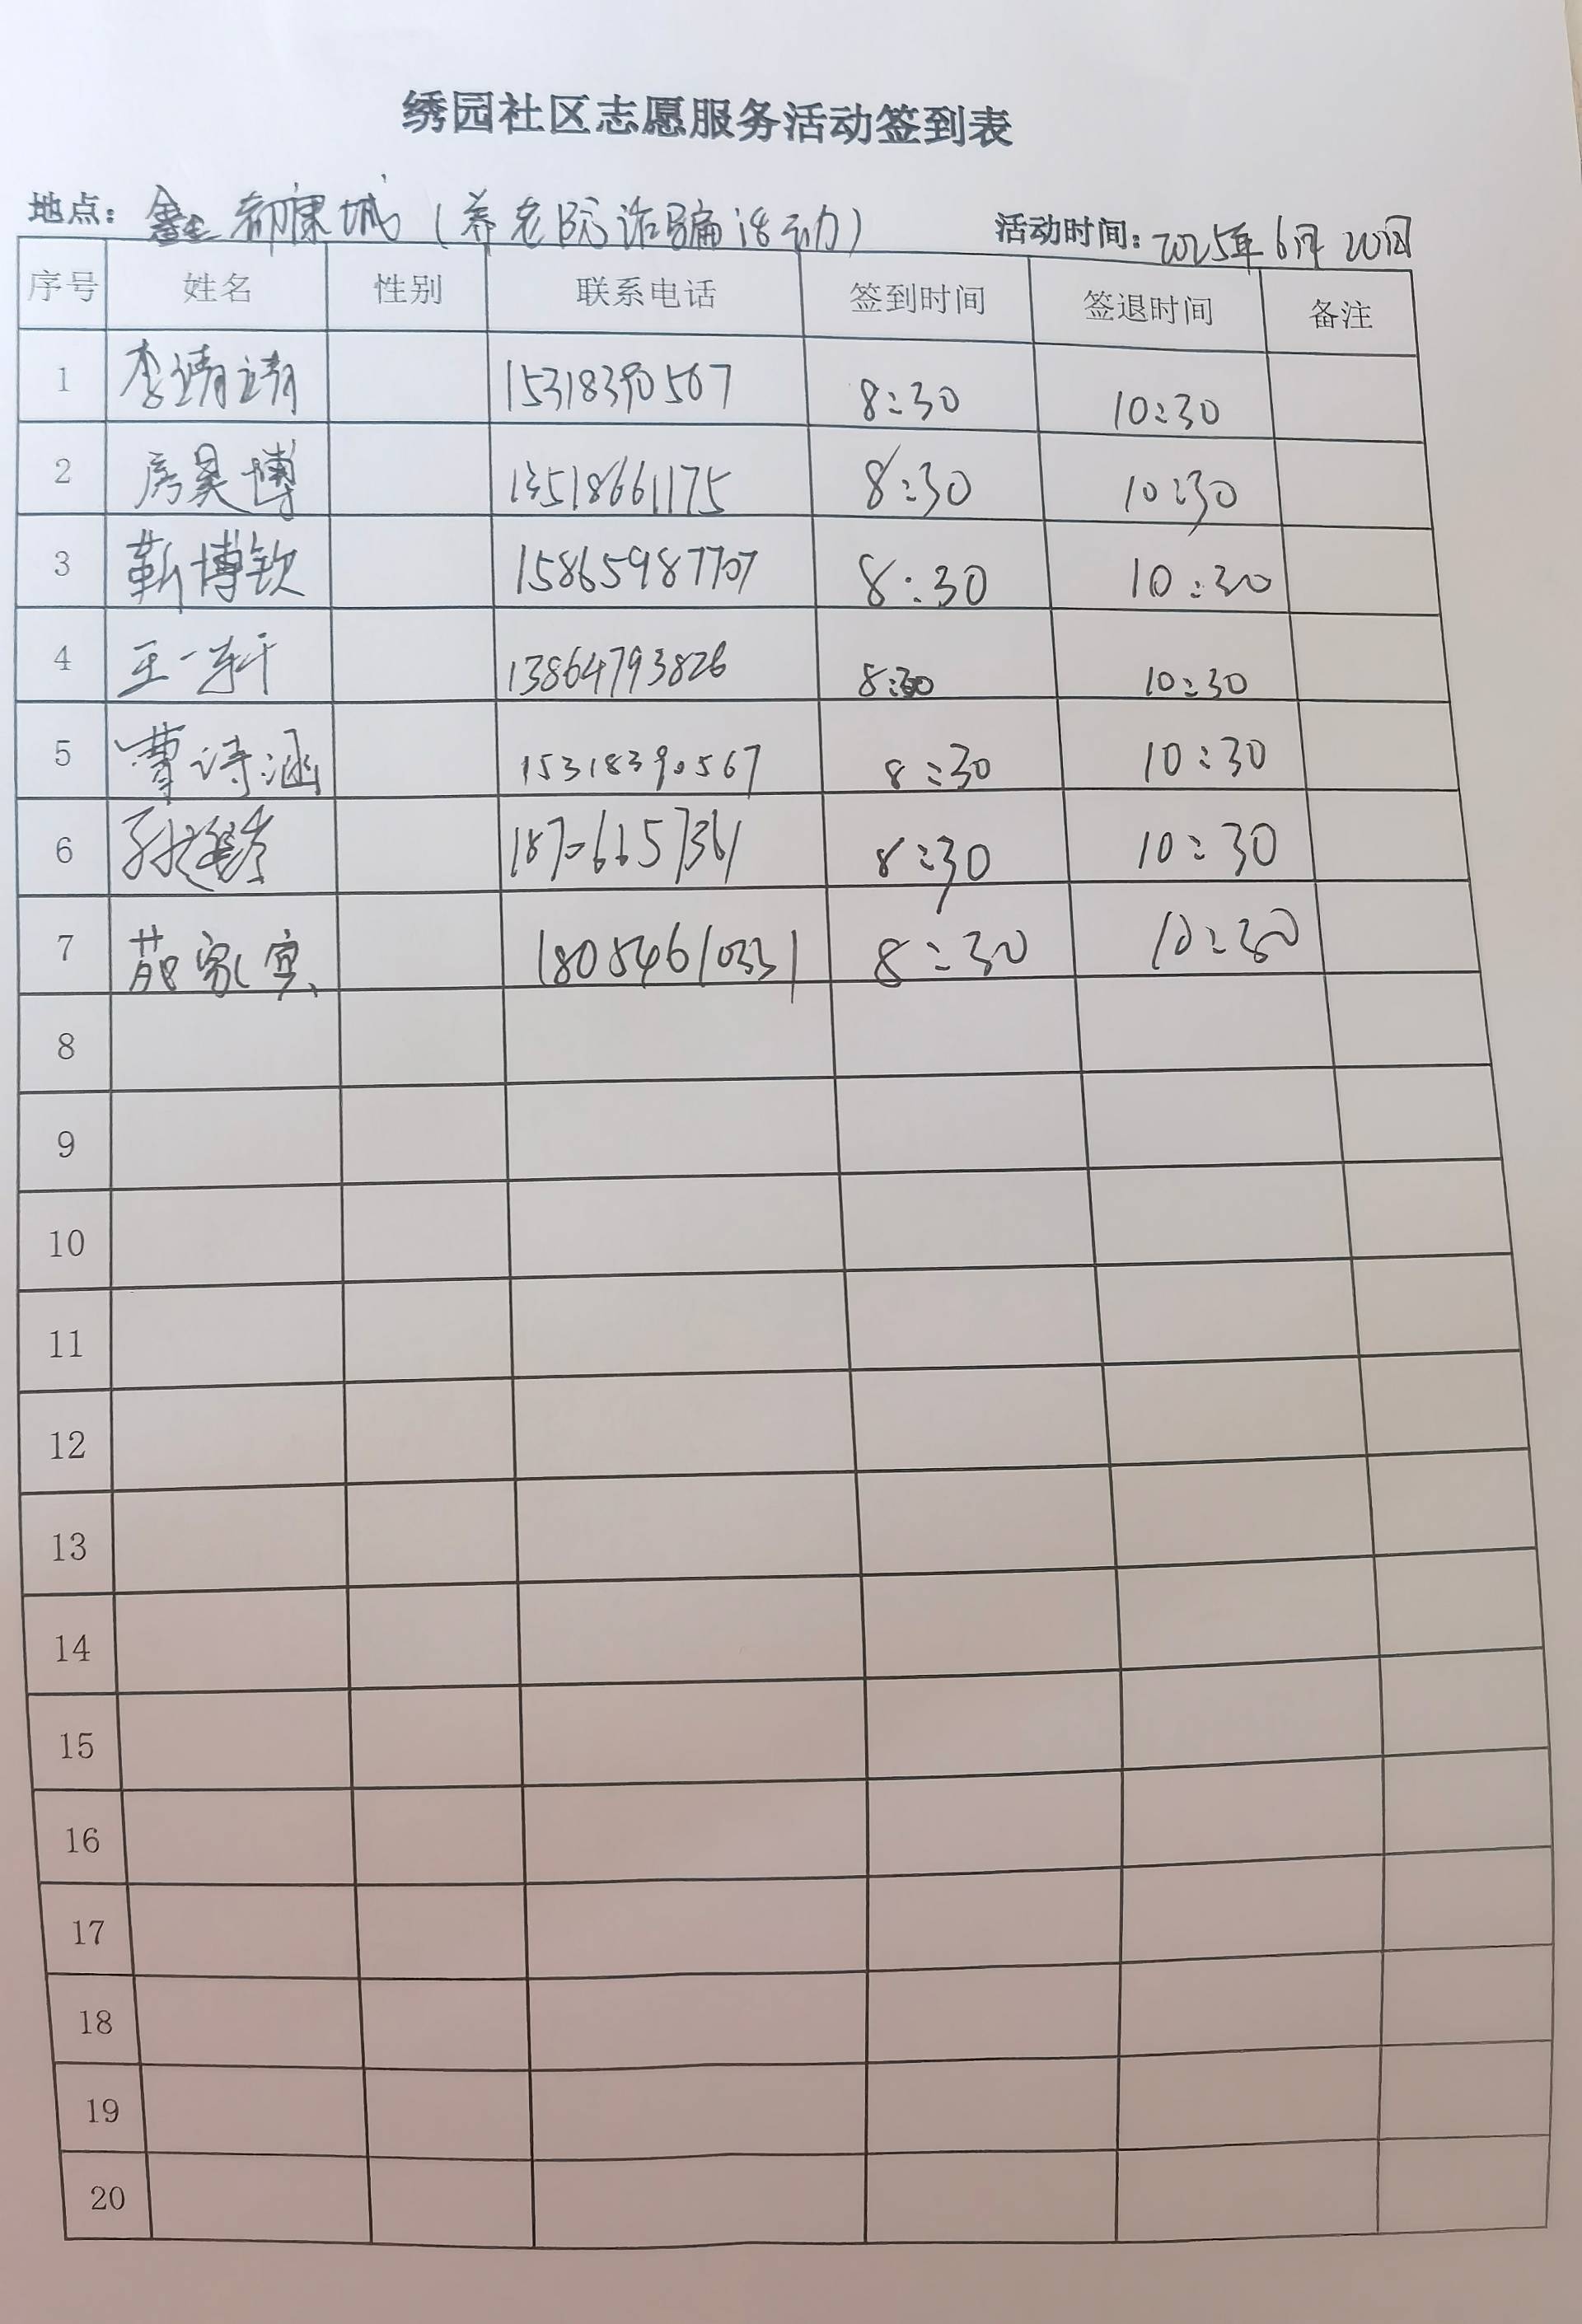 绣园社区志愿服务活动签到表
地点：鑫都康城（养老院诈骗活动） 活动时间：2025年6月20日
序号 姓名 性别 联系电话 签到时间 签退时间 备注
1 李靖靖 15318390567 8:30 10:30
2 房昊博 13518661175 8:30 10:30
3 靳博钦 15865987707 8:30 10:30
4 王一轩 13864793826 8:30 10:30
5 曹诗涵 15318390567 8:30 10:30
6 8:30 10:30
7 家 18054610331 8:30 10:30
8
9
10
11
12
13
14
15
16
17
18
19
20